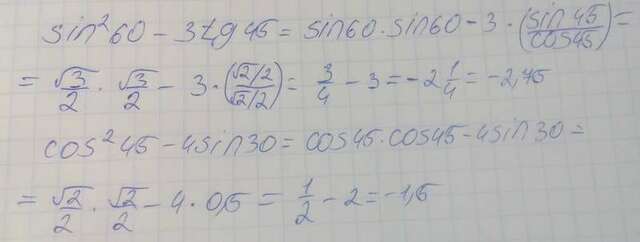 sin²60 - 3tg45 = sin60·sin60 - 3·(sin45/cos45) =
= √3/2 · √3/2 - 3·(√2/2 / √2/2) = 3/4 - 3 = -2 1/4 = -2,75
cos²45 - 4sin30 = cos45·cos45 - 4sin30 =
= √2/2 · √2/2 - 4·0,5 = 1/2 - 2 = -1,5